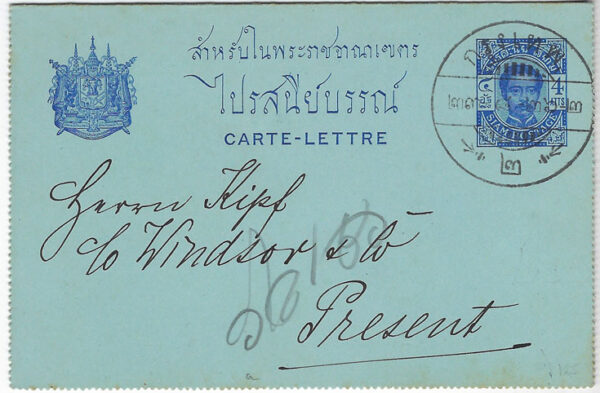 สำหรับในพระราชอาณเขตร
ไปรสนียบรรณ์
CARTE-LETTRE
กรุงเทพฯ
๒
4
SIAM POSTAGE
Herrn Kipf
c/o Windsor & Co
Present